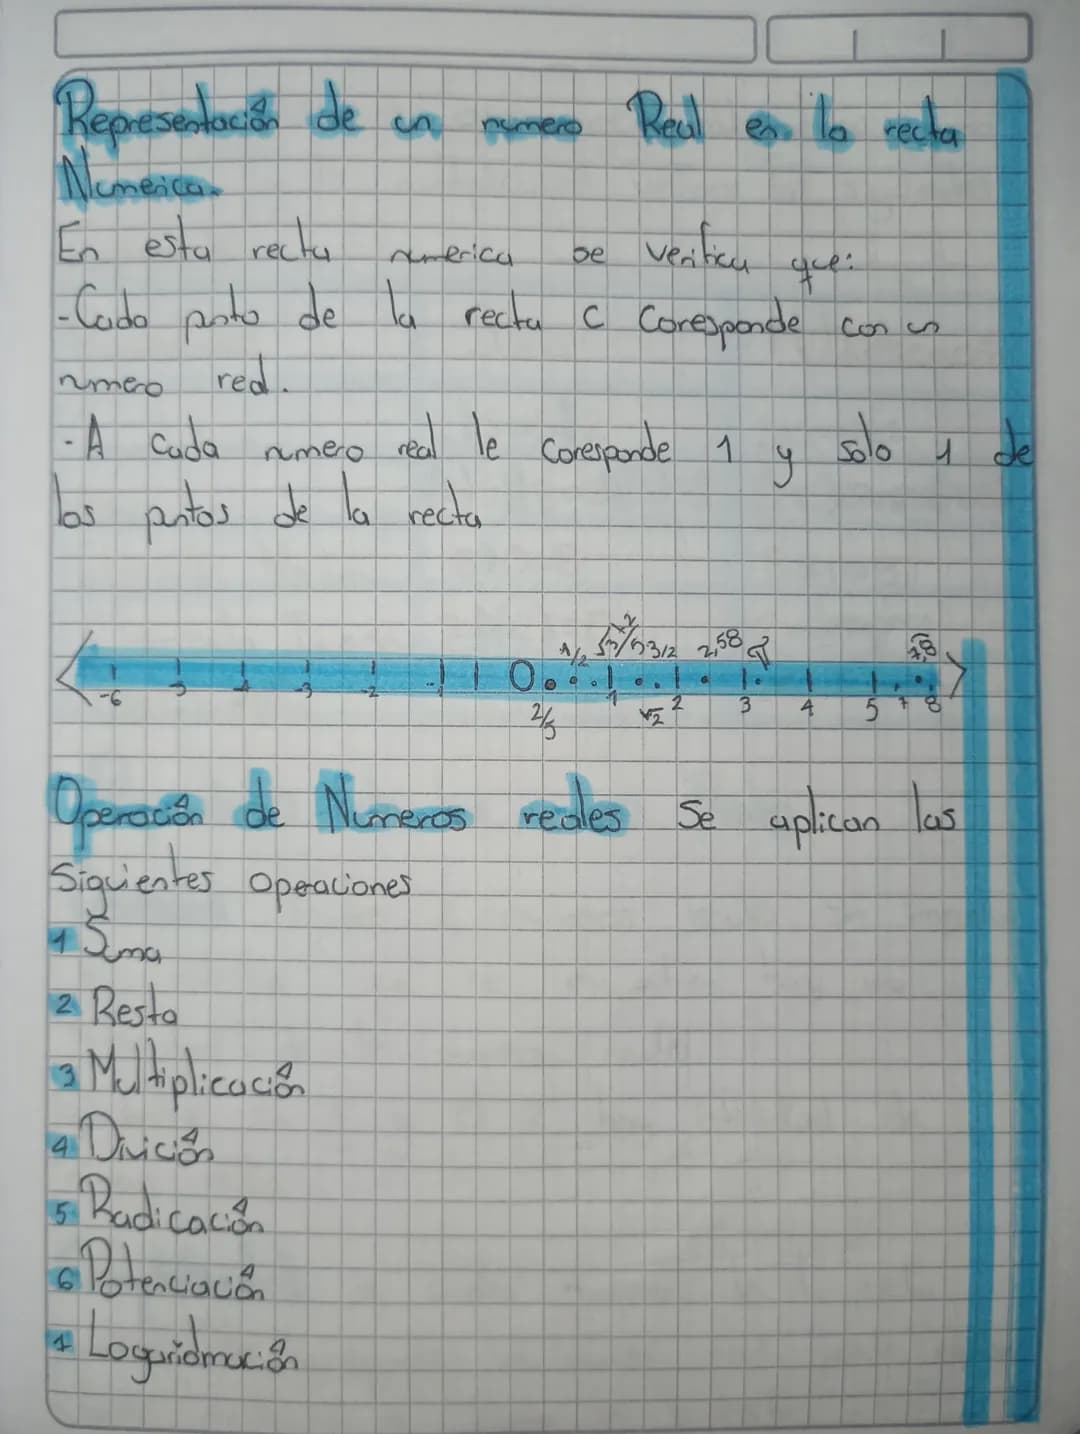 Representación de un numero Real en la recta
Numerica.
En esta recta numerica se verifica que:
-Cada punto de la recta C Coresponde con un
numero real.
-A cada numero real le Coresponde 1 y solo 1 de
los puntos de la recta
1/2 3/2 2,58 π
-6 -3 -2 -1 0 1 2 3 4 5 7 8
2/5 √2
Operación de Numeros reales Se aplican las
Siguientes Operaciones
1 Suma
2 Resta
3 Multiplicación
4 Divición
5 Radicación
6 Potenciación
7 Logaridmación